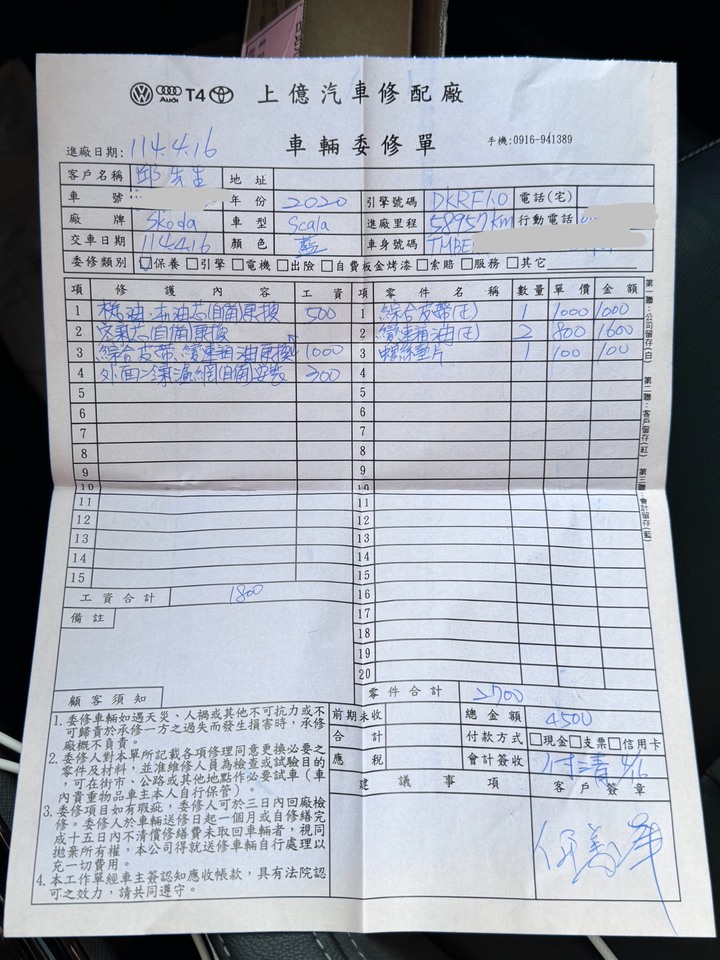 Audi T4 上億汽車修配廠
車輛委修單
手機:0916-941389
進廠日期: 114.4.16
客戶名稱 邱先生 地址
車號 年份 2020 引擎號碼 DKRF1.0 電話(宅)
廠牌 Skoda 車型 Scala 進廠里程 58957KM 行動電話
交車日期 114.4.16 顏色 藍 車身號碼 TMBE
委修類別 □保養 □引擎 □電機 □出險 □自費板金烤漆 □索賠 □服務 □其它
項 修護內容 工資 項 零件名稱 數量 單價 金額
1 機油.機油芯(自備)更換 500 1 綜合皮帶(正) 1 1000 1000
2 空氣芯(自備)更換 2 變車箱油(正) 2 800 1600
3 綜合皮帶、變車箱油更換 1000 3 螺絲墊片 1 100 100
4 外面冷氣濾網(自備)安裝 300 4
5 5
6 6
7 7
8 8
9 9
10 10
11 11
12 12
13 13
14 14
15 15
工資合計 1800 16
備註 17
18
19
20
零件合計 2700
第一聯:公司留存(白) 第二聯:客戶留存(紅) 第三聯:會計留存(藍)
顧客須知
1. 委修車輛如遇天災、人禍或其他不可抗力或不
可歸責於承修一方之過失而發生損害時,承修
廠概不負責。
2. 委修人對本單所記載各項修理同意更換必要之
零件及材料,並准維修人員為檢查或試驗目的
,可在街市、公路或其他地點作必要試車(車
內貴重物品車主本人自行保管)。
3. 委修項目如有瑕疵,委修人可於三日內回廠檢
修。委修人於車輛送修日起一個月或自修繕完
成十五日內不清償修繕費未取回車輛者,視同
拋棄所有權,本公司得就送修車輛自行處理以
充一切費用。
4. 本工作單經車主簽認知應收帳款,具有法院認
可之效力,請共同遵守。
前期未收 總金額 4500
合計 付款方式 □現金□支票□信用卡
應稅 會計簽收 付清
建議事項 客戶簽章